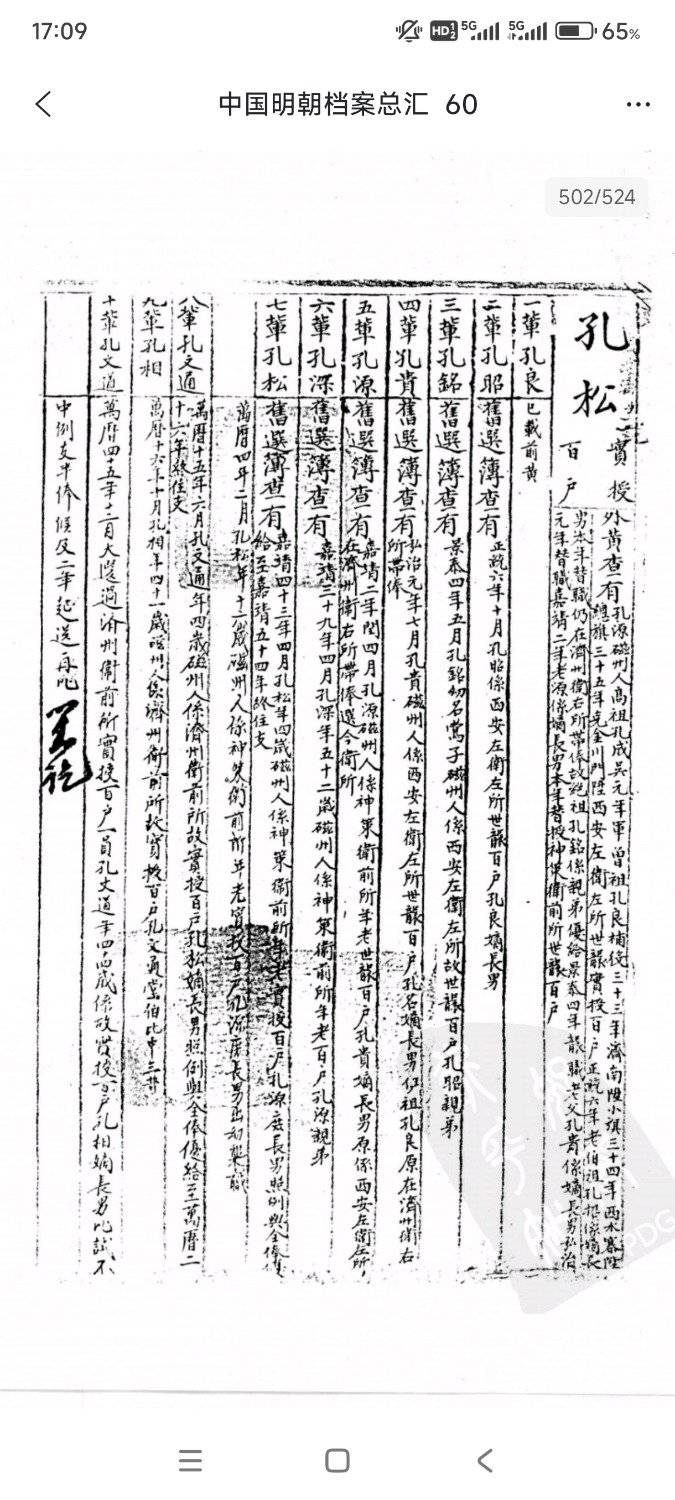 17:09
HD 5G 5G 65%
中国明朝档案总汇 60
502/524
孔松
實授
百户
外黃查有孔源磁州人高祖孔成吳元年軍曾祖孔良補役三十三年濟南陞小旗三十四年西水寨陞
總旗三十五年克金川門陞西安左衛左所世襲實授百户正統六年老伯祖孔昭係嫡長
男本年替職仍在濟州衛右所帶俸故絕祖孔銘係親弟優給景泰四年襲職老父孔貴係嫡長男弘治
元年替職嘉靖二年老源係嫡長男本年替授神策衛前所世襲百户
一輩孔良
已載前黃
二輩孔昭
舊選簿查有
正統六年十月孔昭係西安左衛左所世襲百户孔良嫡長男
三輩孔銘
舊選簿查有
景泰四年五月孔銘幼名鶯子磁州人係西安左衛左所故世襲百户孔昭親弟
四輩孔貴
舊選簿查有
弘治元年七月孔貴磁州人係西安左衛左所世襲百户孔名嫡長男伊祖孔良原在濟州衛右
所帶俸
五輩孔源
舊選簿查有
嘉靖二年閏四月孔源磁州人係神策衛前所年老世襲百户孔貴嫡長男原係西安左衛左所
在濟州衛右所帶俸選今衛所
六輩孔深
舊選簿查有
嘉靖三十九年四月孔深年五十二歲磁州人係神策衛前所年老百户孔源親弟
七輩孔松
舊選簿查有
嘉靖四十三年四月孔松年四歲磁州人係神策衛前所年老實授百户孔源庶長男照例與全俸優
給至嘉靖五十四年終住支
萬曆四年二月孔松年十六歲磁州人係神策衛前所年老實授百户孔源庶長男出幼襲職
八輩孔文通
萬曆十五年六月孔文通年四歲磁州人係濟州衛前所故實授百户孔松嫡長男照例與全俸優給至萬曆二
十六年終住支
九輩孔相
萬曆十六年十月孔相年四十一歲磁州人係濟州衛前所故實授百户孔文通堂伯比中三等
十輩孔文道
萬曆四五年十二月大選過濟州衛前所實授百户一員孔文道年四歲係故實授百户孔相嫡長男比試不
中例支半俸候及二年起送再比